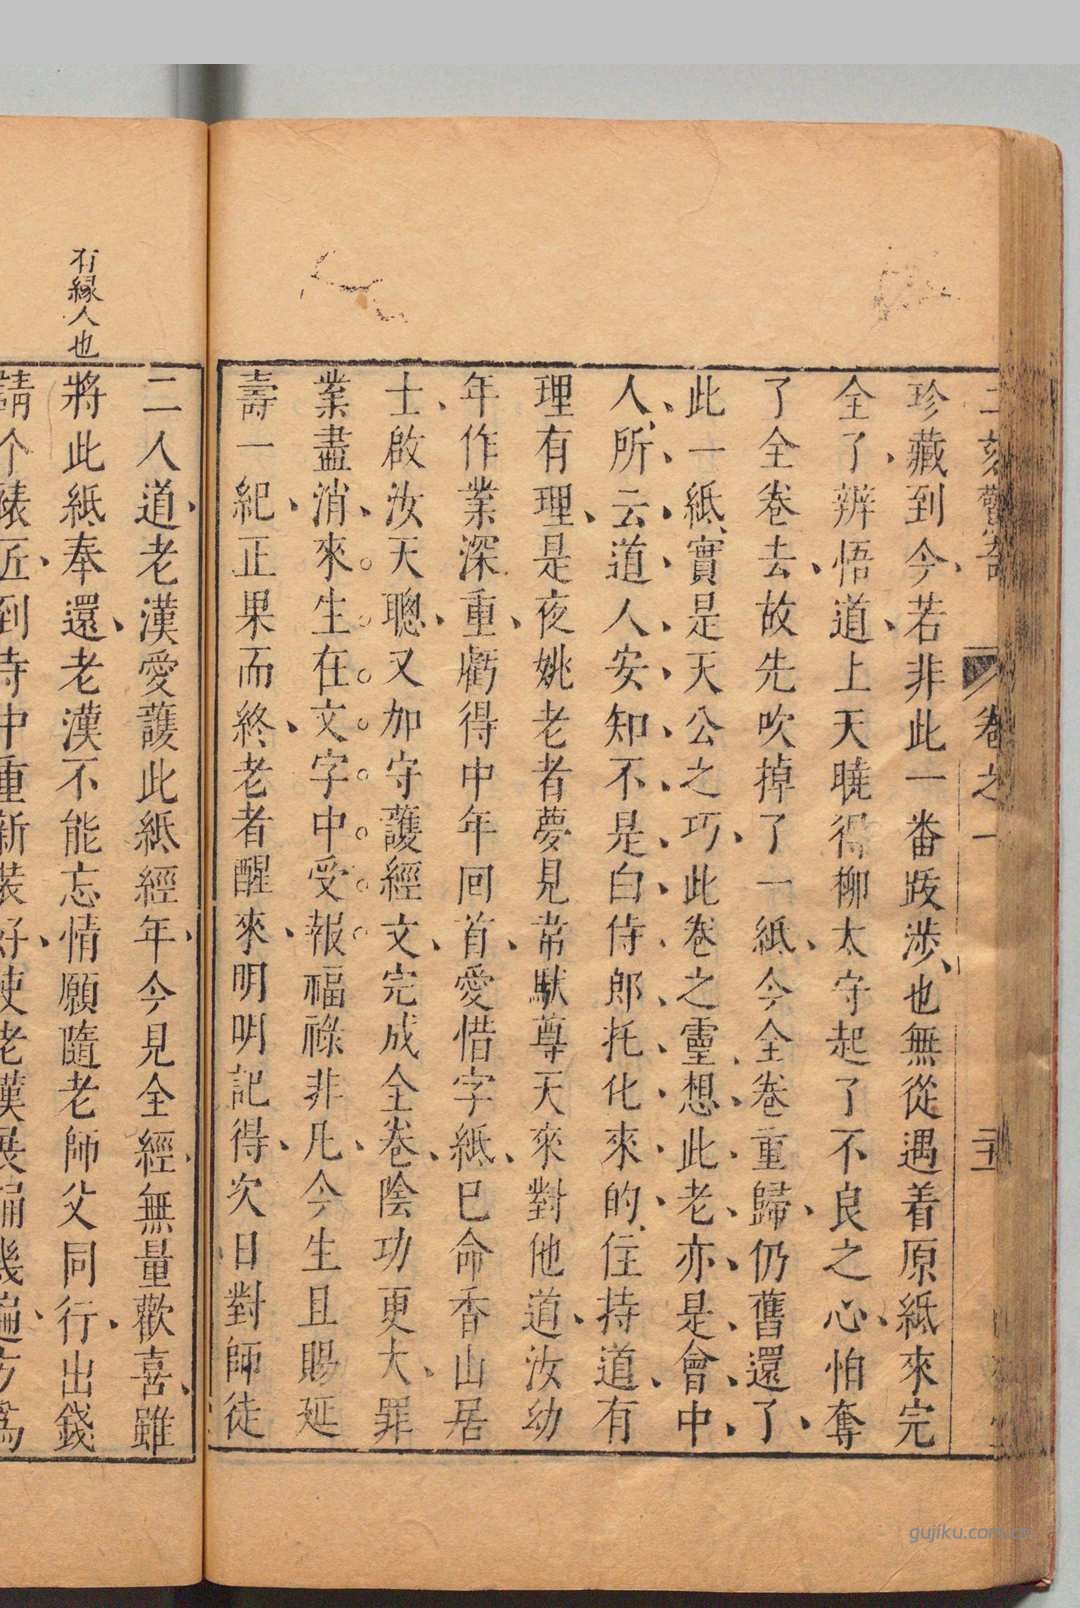 二刻驚奇
卷之一
珍藏到今若非此一番跋涉也無從遇着原紙來完
全了辨悟道上天曉得柳太守起了不良之心怕奪
了全卷去故先吹掉了一紙今全卷重歸仍舊還了
此一紙實是天公之巧此卷之靈想此老亦是會中
人所云道人安知不是白侍郎托化來的住持道有
理有理是夜姚老者夢見韋馱尊天來對他道汝幼
年作業深重虧得中年回首愛惜字紙已命香山居
士啟汝天聰又加守護經文完成全卷陰功更大罪
業盡消來生在文字中受報福祿非凡今生且賜延
壽一紀正果而終老者醒來明明記得次日對師徒
二人道老漢愛護此紙經年今見全經無量歡喜雖
有緣人也
將此紙奉還老漢不能忘情願隨老師父同行出錢
請个裱匠到寺中重新裝好使老漢展誦幾遍方爲
gujiku.com